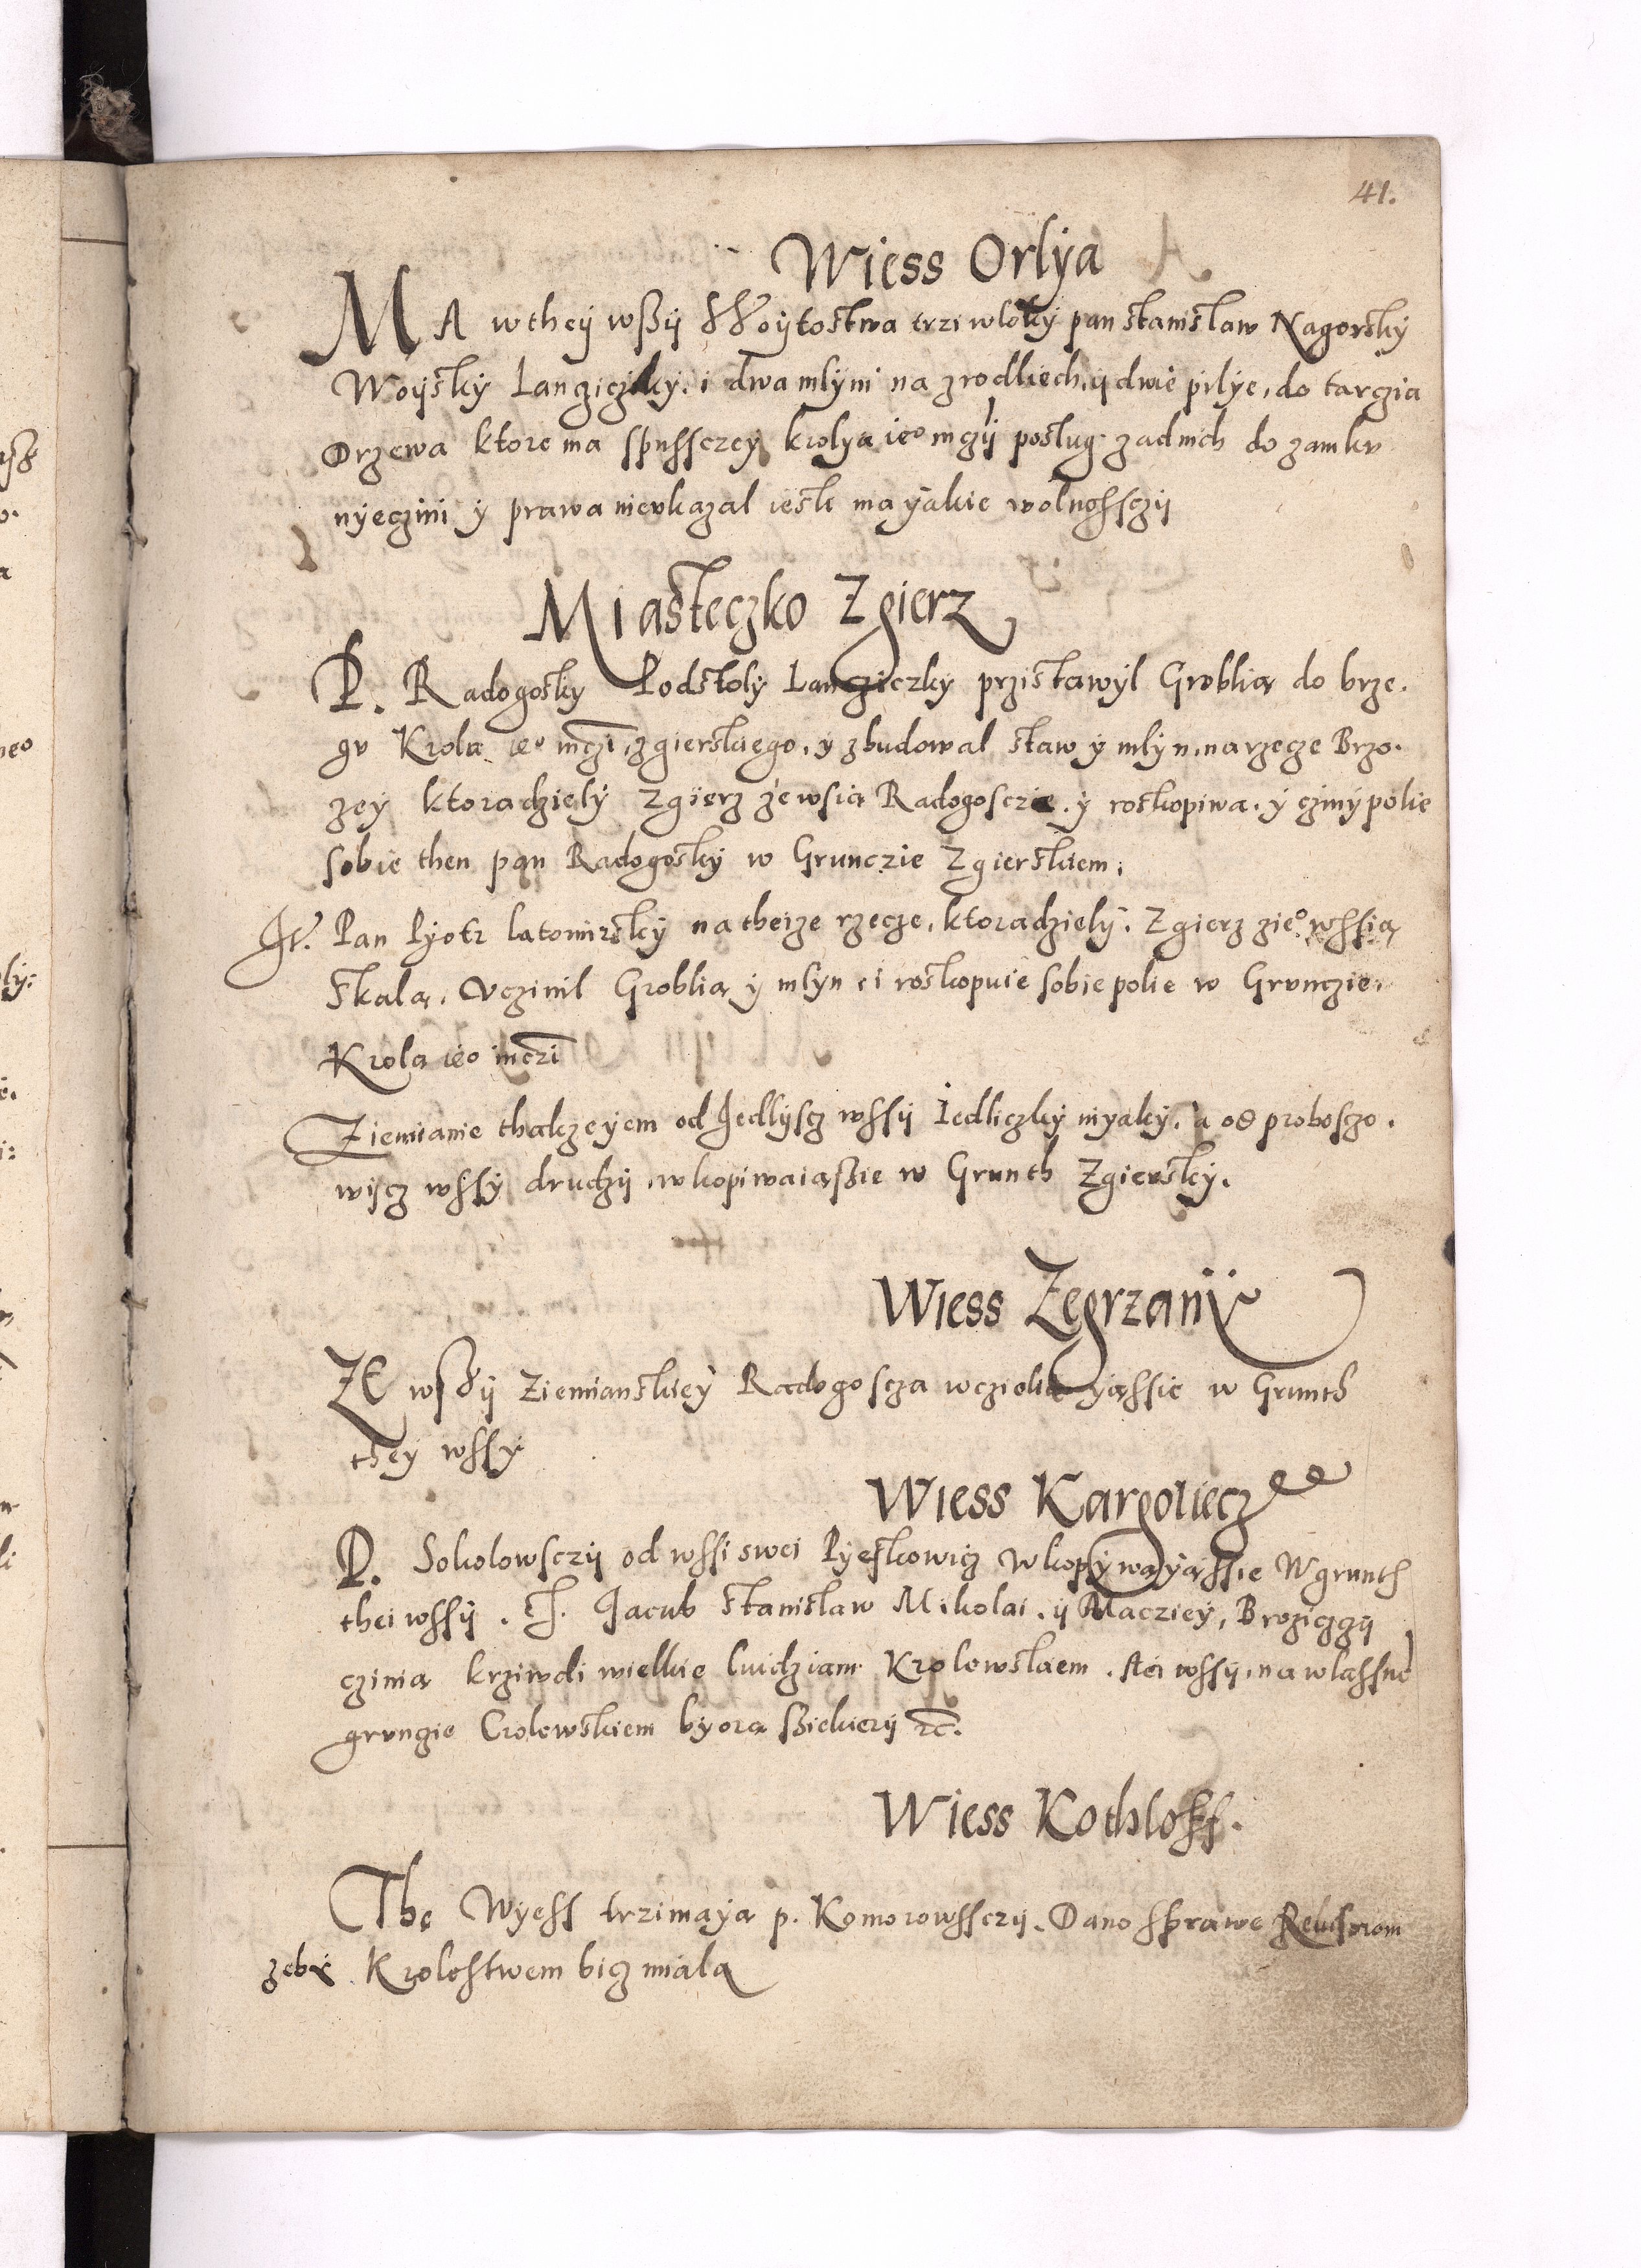 41.
Wiess Orlÿa
MA wtheÿ wßÿ Woÿtostwa trzi wloky pan stanislaw Nagorskÿ
Woÿskÿ Lanczÿczkÿ. i dwa mlÿni na zrodliech, ÿ dwie pilÿe, do tarczia
Drzewa ktore ma spussczey krolÿa ieo mczÿ poslug zadnich do zamku
nÿeczini ÿ prawa nieukazal iesli ma ÿakie wolnossczÿ
Miasteczko Zgierz
P. Radogoskÿ Podstolÿ Lancziczkÿ przistawÿl Groblią do brze.
gu Krola ieo mczi zgierskiego, ÿ zbudowal staw ÿ mlÿn, na rzecze Brzo.
zeÿ ktora dzielÿ Zgierz zewsią Radogoscze. ÿ roskopiwa. ÿ czinÿ polie
sobie then pan Radogoskÿ w Grunczie Zgierskiem.
It. Pan Pÿotr latomirskÿ na theize rzecze, ktora dzielÿ. Zgierz zieo wssią
Skala. Uczinil Groblią ÿ mlÿn, i roskopuie sobie polie w Grunczie.
Krola ieo mczi
Ziemianie thakzeÿem od Jedlÿscz wssÿ Iedliczkÿ niÿakÿ. a od proboszo.
wiscz wssÿ drudzÿ. wkopiwaiąßie w Grunth Zgierskÿ.
Wiess Zegrzanÿ
ZE wsßÿ Ziemianskieÿ Radogoscza wczieliaÿąssie w Grunth
theÿ wssÿ
Wiess Kargoliecz
P. Sokolowsczÿ od wssi swei Pÿeskowicz wkopÿwaÿąssie W grunth
thei wssÿ. It. Jacub Stanislaw Mikolai. ÿ Macziey, Broziczÿ
czinia krziwdi wielkie luidziam Krolowskiem. tei wssÿ, na wlassne
grunzie Crolewskiem bÿora ßiekierÿ rc.
Wiess Kothloff.
The Wÿess trzimaÿa p. Komorowssczÿ. Dano sprawe Reuisorom
zebÿ Krolestwem bicz miala